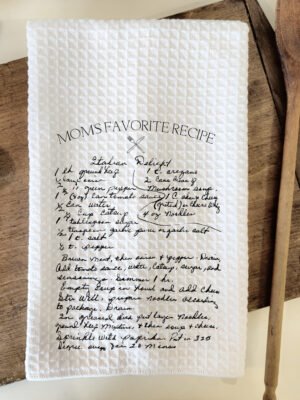 MOM'S FAVORITE RECIPE
Italian Delight
1 lb ground beef 1 t. oregano
1 large onion 2 cans
½ green pepper Mushroom soup
1 (8 oz) can tomato sauce 1 C. sharp
½ can water (grated)
½ cup catsup 8 oz Noodles
1 tablespoon sugar
½ teaspoon garlic or garlic salt
1 t. salt
½ t. pepper
Brown meat, then onion & pepper. Drain,
Add tomato sauce, water, catsup, sugar, and
seasonings. Simmer 1 hr.
Empty soup in and add
Stir Well. prepare noodles according
to package. Drain
In greased dish put layer Noodles,
ground beef Mixture, & then soup & cheese.
Sprinkle with Paprika. Put in 350
degree oven for 20 Minutes